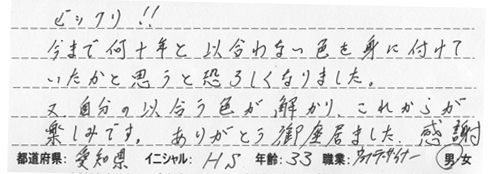 ビックリ!!
今まで何十年と以合わない色を身に付けて
いたかと思うと恐ろしくなりました。
又自分の以合う色が解かり、これからが
楽しみです。ありがとう御座居ました。感謝
都道府県: 愛知県 イニシャル: HS 年齢: 33 職業: ウェブデザイナー 男・女